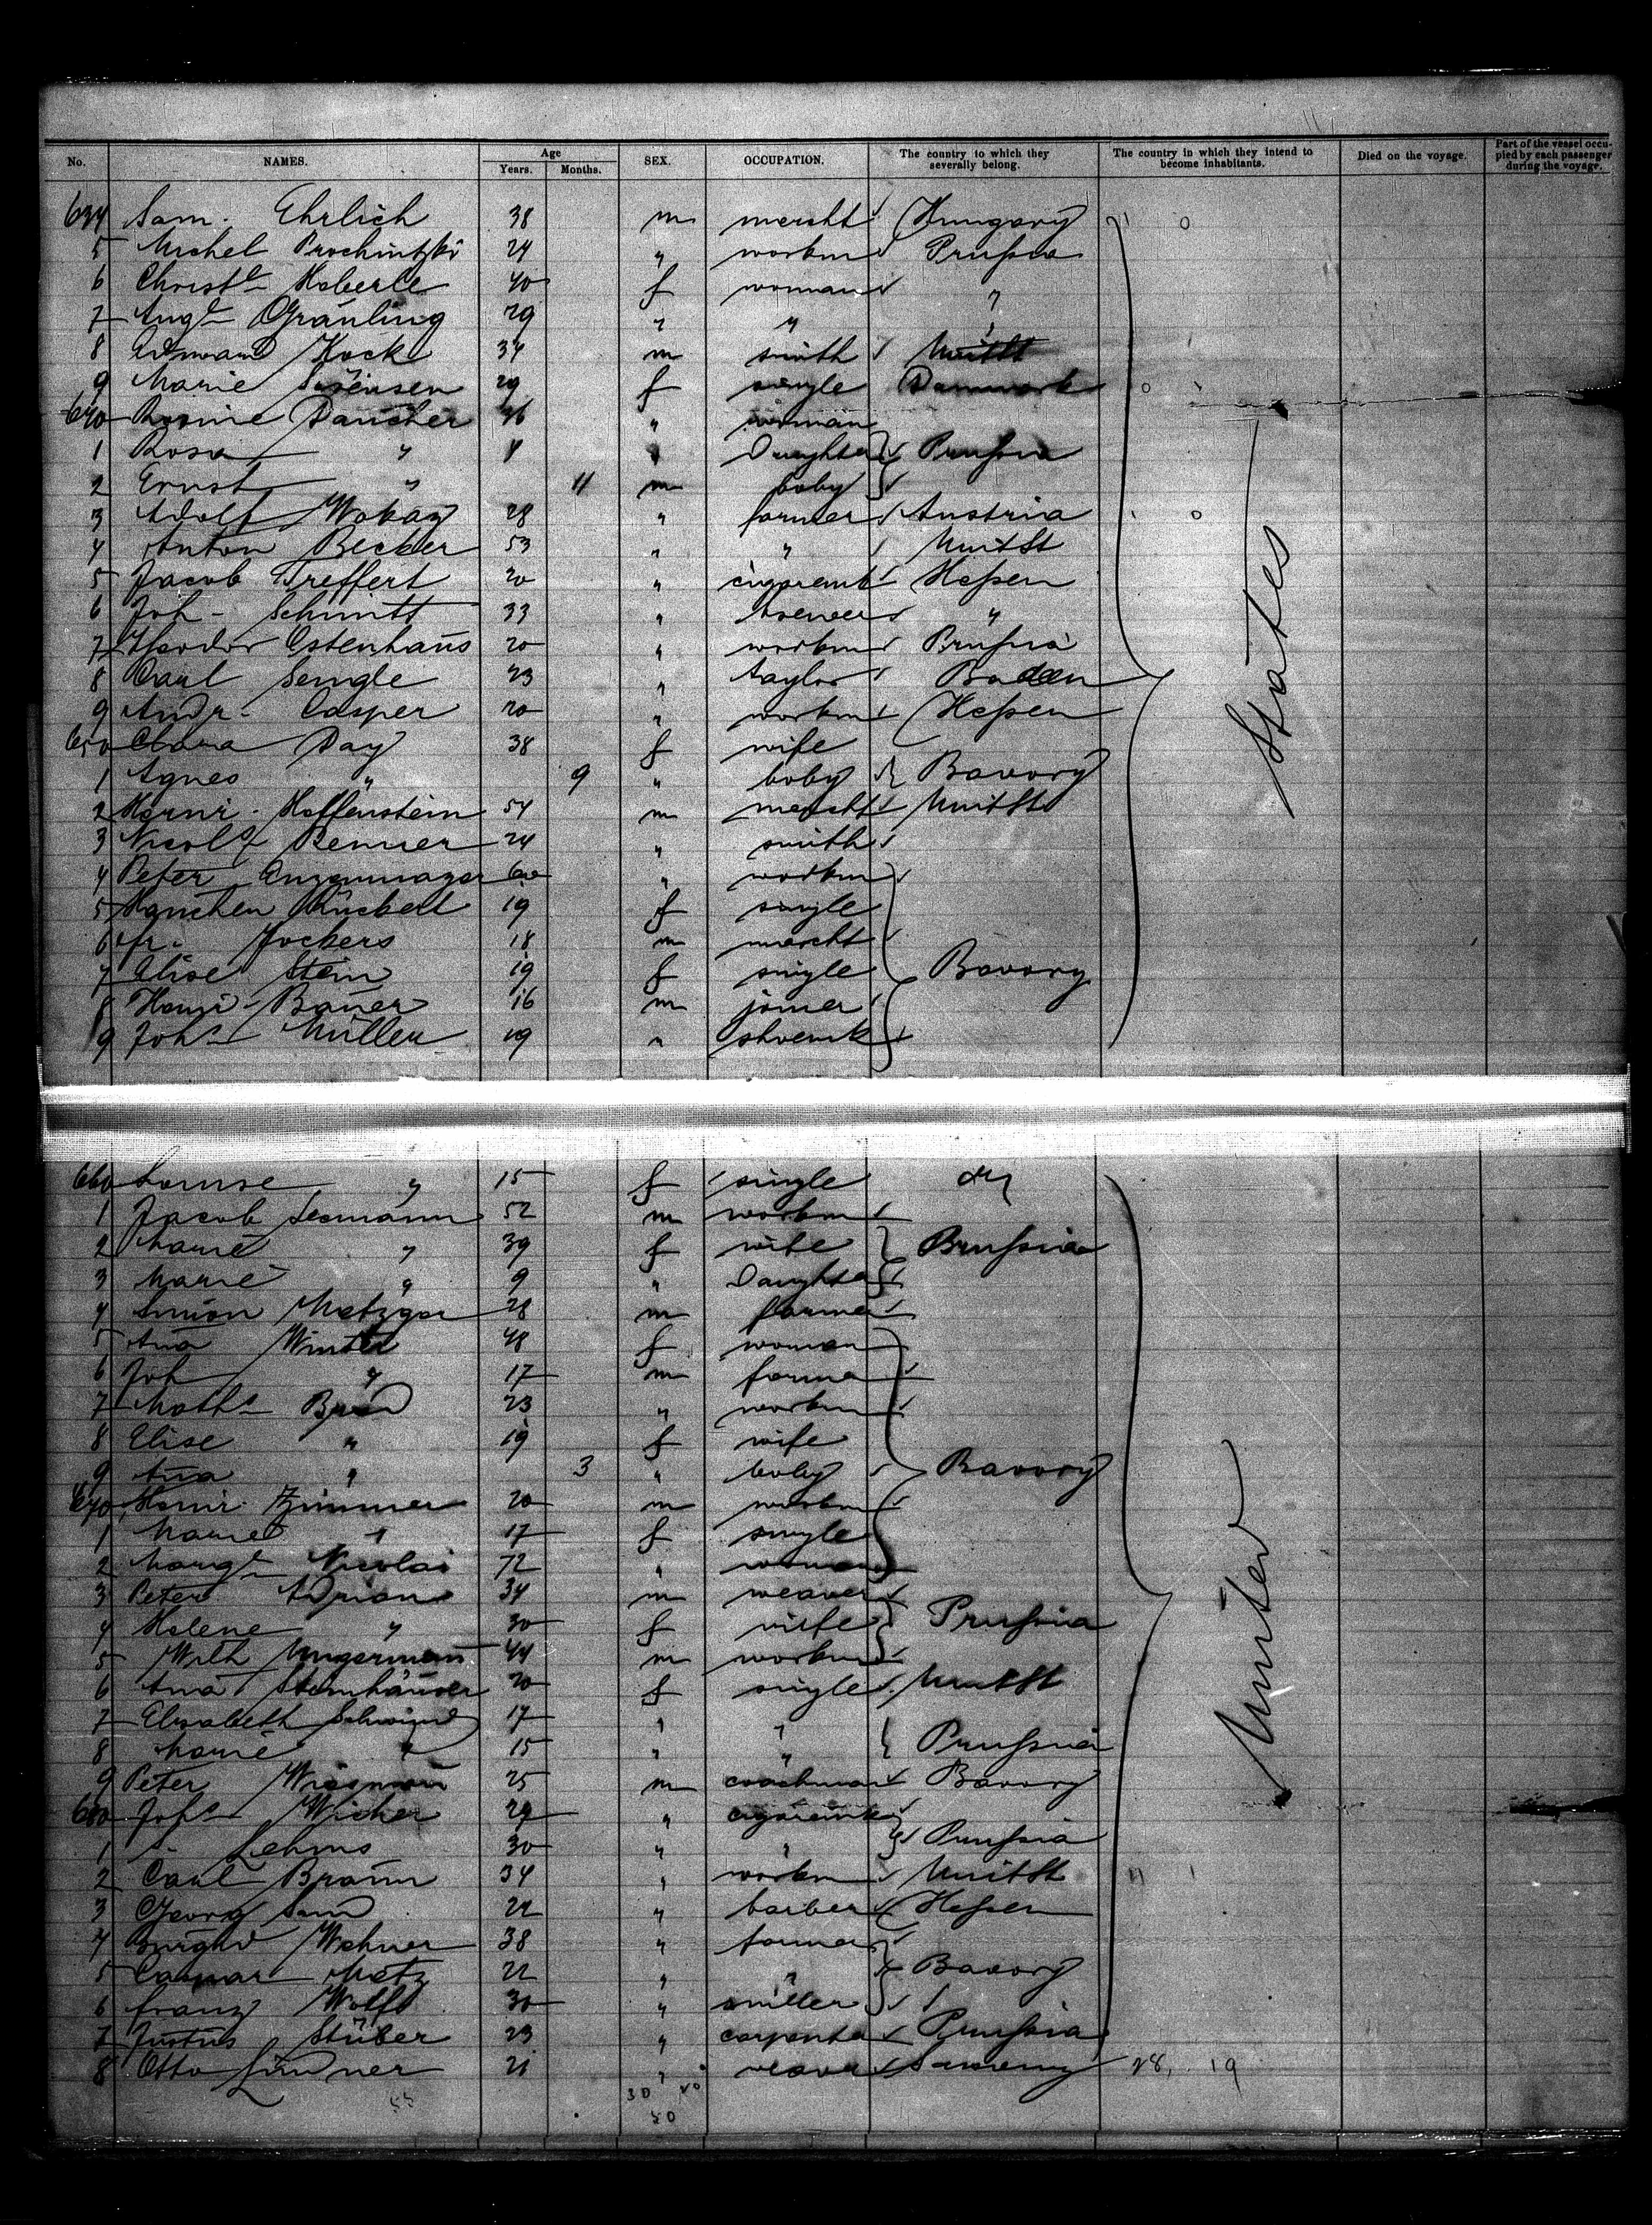 No. NAMES. Age Years. Months. SEX. OCCUPATION. The country to which they severally belong. The country in which they intend to become inhabitants. Died on the voyage. Part of the vessel occupied by each passenger during the voyage.
634 Sam. Ehrlich 38 m mercht Hungary
5 Michel Prochintzki 24 " workm Prussia
6 Christe Heberle 40 f woman "
7 Auge Gränling 29 " " "
8 Edmund Kock 34 m smith UnitSt
9 Marie Sörensen 29 f single Danmark
640 Rosine Dauscher 46 " woman
1 Rosa " 4 " Daughter Prussia
2 Ernst " 11 m baby
3 Adolf Wokaz 28 " farmer Austria
4 Anton Becker 53 " " UnitSt
5 Jacob Treffert 20 " cigaremk Hessen
6 Joh- Schmitt 33 " brewer "
7 Theodor Ostenhaus 20 " workm Prussia
8 Carl Sengle 23 " taylor Baden
9 Andr- Casper 20 " workm Hessen
650 Clara Day 38 f wife
1 Agnes " 9 " baby Bavory
2 Heinr- Hoffenstein 54 m mercht UnitSt
3 Nicols Benner 24 " smith
4 Peter Enzenmayer 60 " workm
5 Hanchen Rückert 19 f single
6 Fr- Jockers 18 m mercht
7 Elise Stein 19 f single Bavory
8 Heinr- Bauer 16 m joiner
9 Johs Müller 19 " shoemk
States
660 Louise " 15 f single dy
1 Jacob Lesmann 52 m workm
2 Marie " 39 f wife Prussia
3 Marie " 9 " Daughter
4 Simon Metzger 28 m farmer
5 Ana Winter 48 f woman
6 Joh " 17 m farmer
7 Maths 23 " workm
8 Elise " 19 f wife
9 Ana " 3 " baby Bavory
670 Heinr- Zimmer 20 m workm
1 Marie " 17 f single
2 Marge Nicolai 72 " woman
3 Peter Adrian 34 m weaver
4 Helene " 30 f wife Prussia
5 Wilh Ungermann 44 m workm
6 Ana Steinhäuser 20 f single UnitSt
7 Elisabeth Schwind 17 " "
8 Marie " 15 " " Prussia
9 Peter 25 m coachman Bavory
680 Johs Wicher 29 " cigaremk
1 Lehms 30 " " Prussia
2 Carl Braun 34 " workm UnitSt
3 Georg 22 " barber Hessen
4 Wehner 38 " farmer
5 Caspar Metz 22 " " Bavory
6 Franz Wolff 30 " miller
7 Justus Stüber 23 " carpenter Prussia
8 Otto Lindner 21 " weaver 28, 19
United
30 20
50